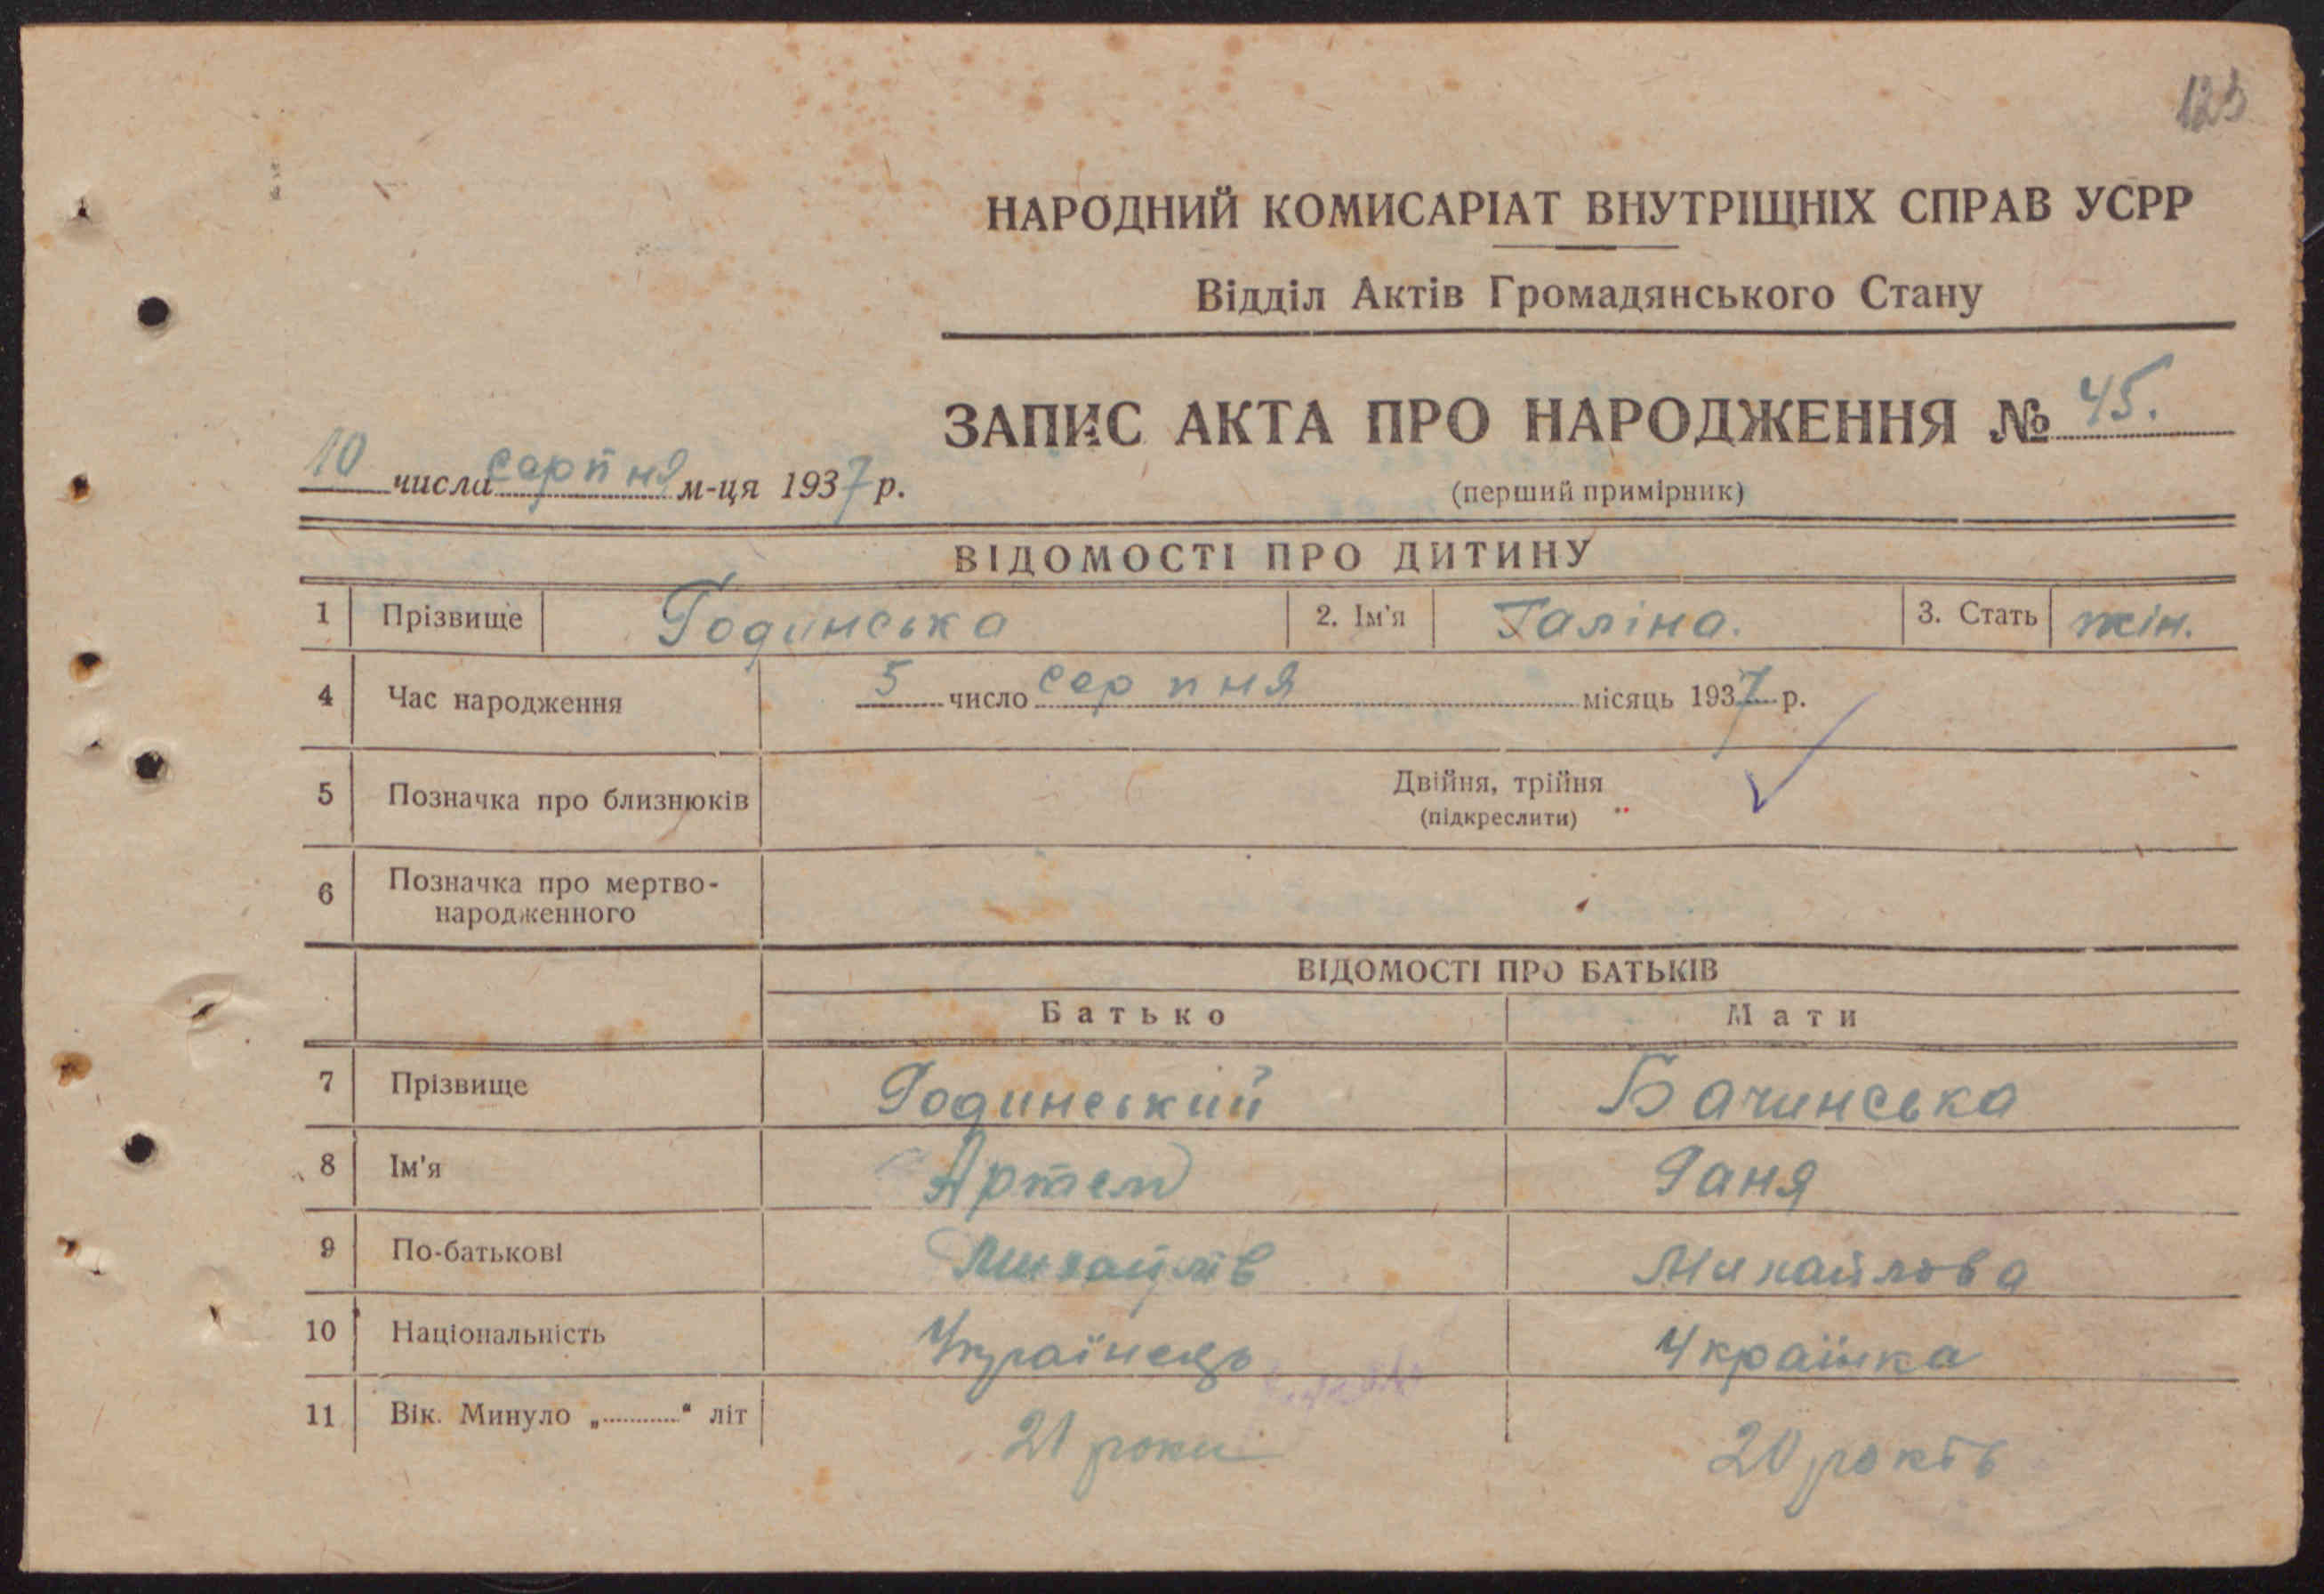 123
НАРОДНИЙ КОМИСАРІАТ ВНУТРІШНІХ СПРАВ УСРР
Відділ Актів Громадянського Стану
ЗАПИС АКТА ПРО НАРОДЖЕННЯ № 45.
10 числа серпня м-ця 1937 р.
(перший примірник)
ВІДОМОСТІ ПРО ДИТИНУ
1 Прізвище Годинська 2. Ім'я Галіна. 3. Стать жін.
4 Час народження 5 число серпня місяць 1937 р.
5 Позначка про близнюків Двійня, трійня
(підкреслити)
6 Позначка про мертво-
народженного
ВІДОМОСТІ ПРО БАТЬКІВ
Батько Мати
7 Прізвище Годинський Бачинська
8 Ім'я Артем Ганя
9 По-батькові Михайлів Михайлова
10 Національність Українець Українка
11 Вік. Минуло „............“ літ 21 роки 20 років